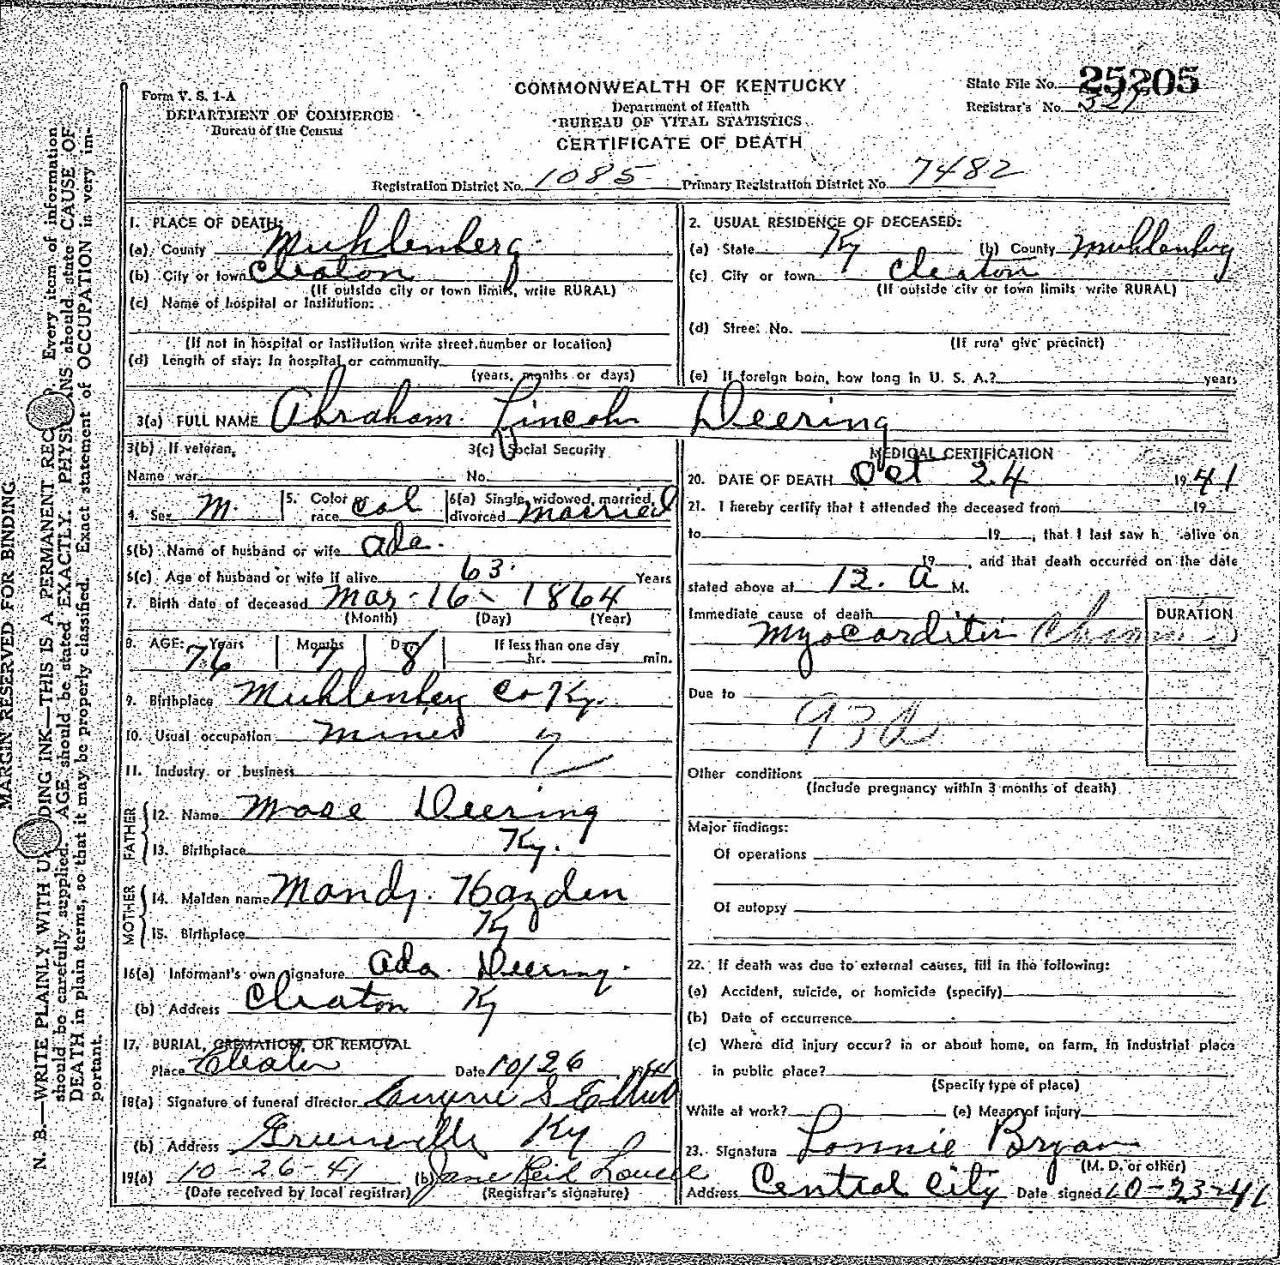 Form V. S. 1-A
DEPARTMENT OF COMMERCE
Bureau of the Census
COMMONWEALTH OF KENTUCKY
Department of Health
BUREAU OF VITAL STATISTICS
CERTIFICATE OF DEATH
State File No. 25205
Registrar's No. 327
Registration District No. 1085 Primary Registration District No. 7482
MARGIN RESERVED FOR BINDING
N. B.—WRITE PLAINLY WITH DING INK—THIS IS A PERMANENT REC Every item of information
should be carefully supplied. AGE should be stated EXACTLY. PHYSI NS should state CAUSE OF
DEATH in plain terms, so that it may be properly classified. Exact statement of OCCUPATION is very im-
portant.
1. PLACE OF DEATH:
(a) County Muhlenberg
(b) City or town Cleaton
(If outside city or town limits, write RURAL)
(c) Name of hospital or institution:
(If not in hospital or institution write street number or location)
(d) Length of stay: In hospital or community
(years, months or days)
2. USUAL RESIDENCE OF DECEASED:
(a) State Ky (b) County Muhlenberg
(c) City or town Cleaton
(If outside city or town limits write RURAL)
(d) Street No.
(If rural give precinct)
(e) If foreign born, how long in U. S. A.? years
3(a) FULL NAME Abraham Lincoln Deering
3(b) If veteran,
Name war
3(c) Social Security
No.
4. Sex M. 5. Color race Col 6(a) Single, widowed, married, divorced Married
6(b) Name of husband or wife Ada.
6(c) Age of husband or wife if alive 63. Years
7. Birth date of deceased Mar - 16 - 1864
(Month) (Day) (Year)
8. AGE: Years 76 Months 7 Days 8 If less than one day
hr. min.
9. Birthplace Muhlenberg Co Ky.
10. Usual occupation Miner
11. Industry or business
FATHER
12. Name Mose Deering
13. Birthplace Ky.
MOTHER
14. Maiden name Mandy Hayden
15. Birthplace Ky
16(a) Informant's own signature Ada Deering.
(b) Address Cleaton Ky
17. BURIAL, CREMATION, OR REMOVAL
Place Cleaton Date 10/26 1941
18(a) Signature of funeral director Eugene S
(b) Address Greenville Ky
19(a) 10-26-41 (b) Jane Reid Lovell
(Date received by local registrar) (Registrar's signature)
MEDICAL CERTIFICATION
20. DATE OF DEATH Oct 24 1941
21. I hereby certify that I attended the deceased from 19
to 19 , that I last saw h alive on
19 , and that death occurred on the date
stated above at 12. A M.
Immediate cause of death
DURATION
Myocarditis Chronic
Due to
93d
Other conditions
(Include pregnancy within 3 months of death)
Major findings:
Of operations
Of autopsy
22. If death was due to external causes, fill in the following:
(a) Accident, suicide, or homicide (specify)
(b) Date of occurrence
(c) Where did injury occur? in or about home, on farm, in industrial place
in public place?
(Specify type of place)
While at work? (e) Means of injury
23. Signature Lonnie Bryan
(M. D. or other)
Address Central City Date signed 10-23-41